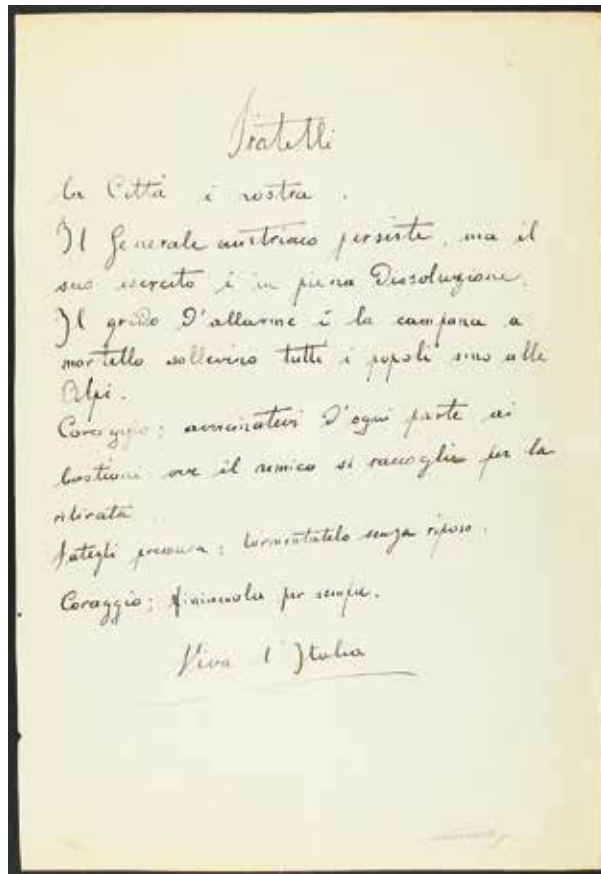 Fratelli
La Città è nostra.
Il Generale austriaco persiste, ma il
suo esercito è in piena Dissoluzione.
Il grido D'allarme è la campana a
martello sollevino tutti i popoli sino alle
Alpi.
Coraggio; avvicinatevi D'ogni parte ai
bastioni ove il nemico si raccoglie per la
ritirata
fategli pressura; tormentatelo senza riposo.
Coraggio; finiamola per sempre.
Viva l'Italia